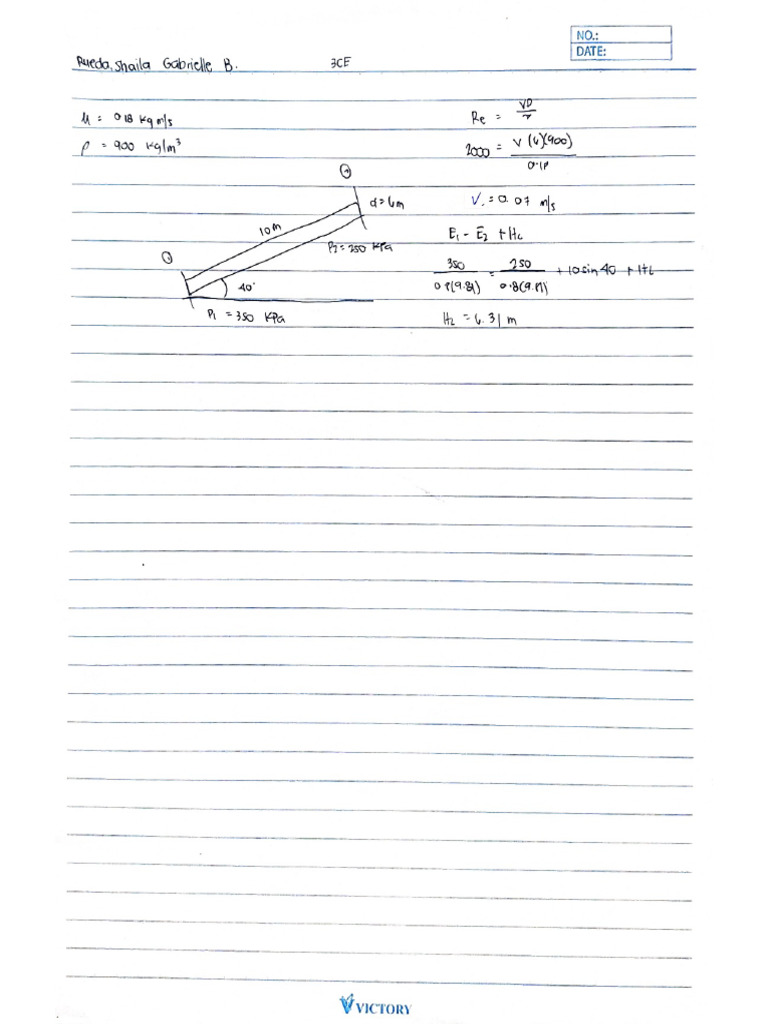 NO.:
DATE:
Rueda, Shaila Gabrielle B. 3CE
μ = 0.18 kg m/s
ρ = 900 kg/m³
Re = VD/r
2000 = V(6)(900)/0.18
V = 0.07 m/s
E1 - E2 + HL
350/0.8(9.81) = 250/0.8(9.81) + 10 sin 40 + HL
HL = 6.31 m
d = 6m
10 m
P2 = 250 KPa
40°
P1 = 350 KPa
VICTORY